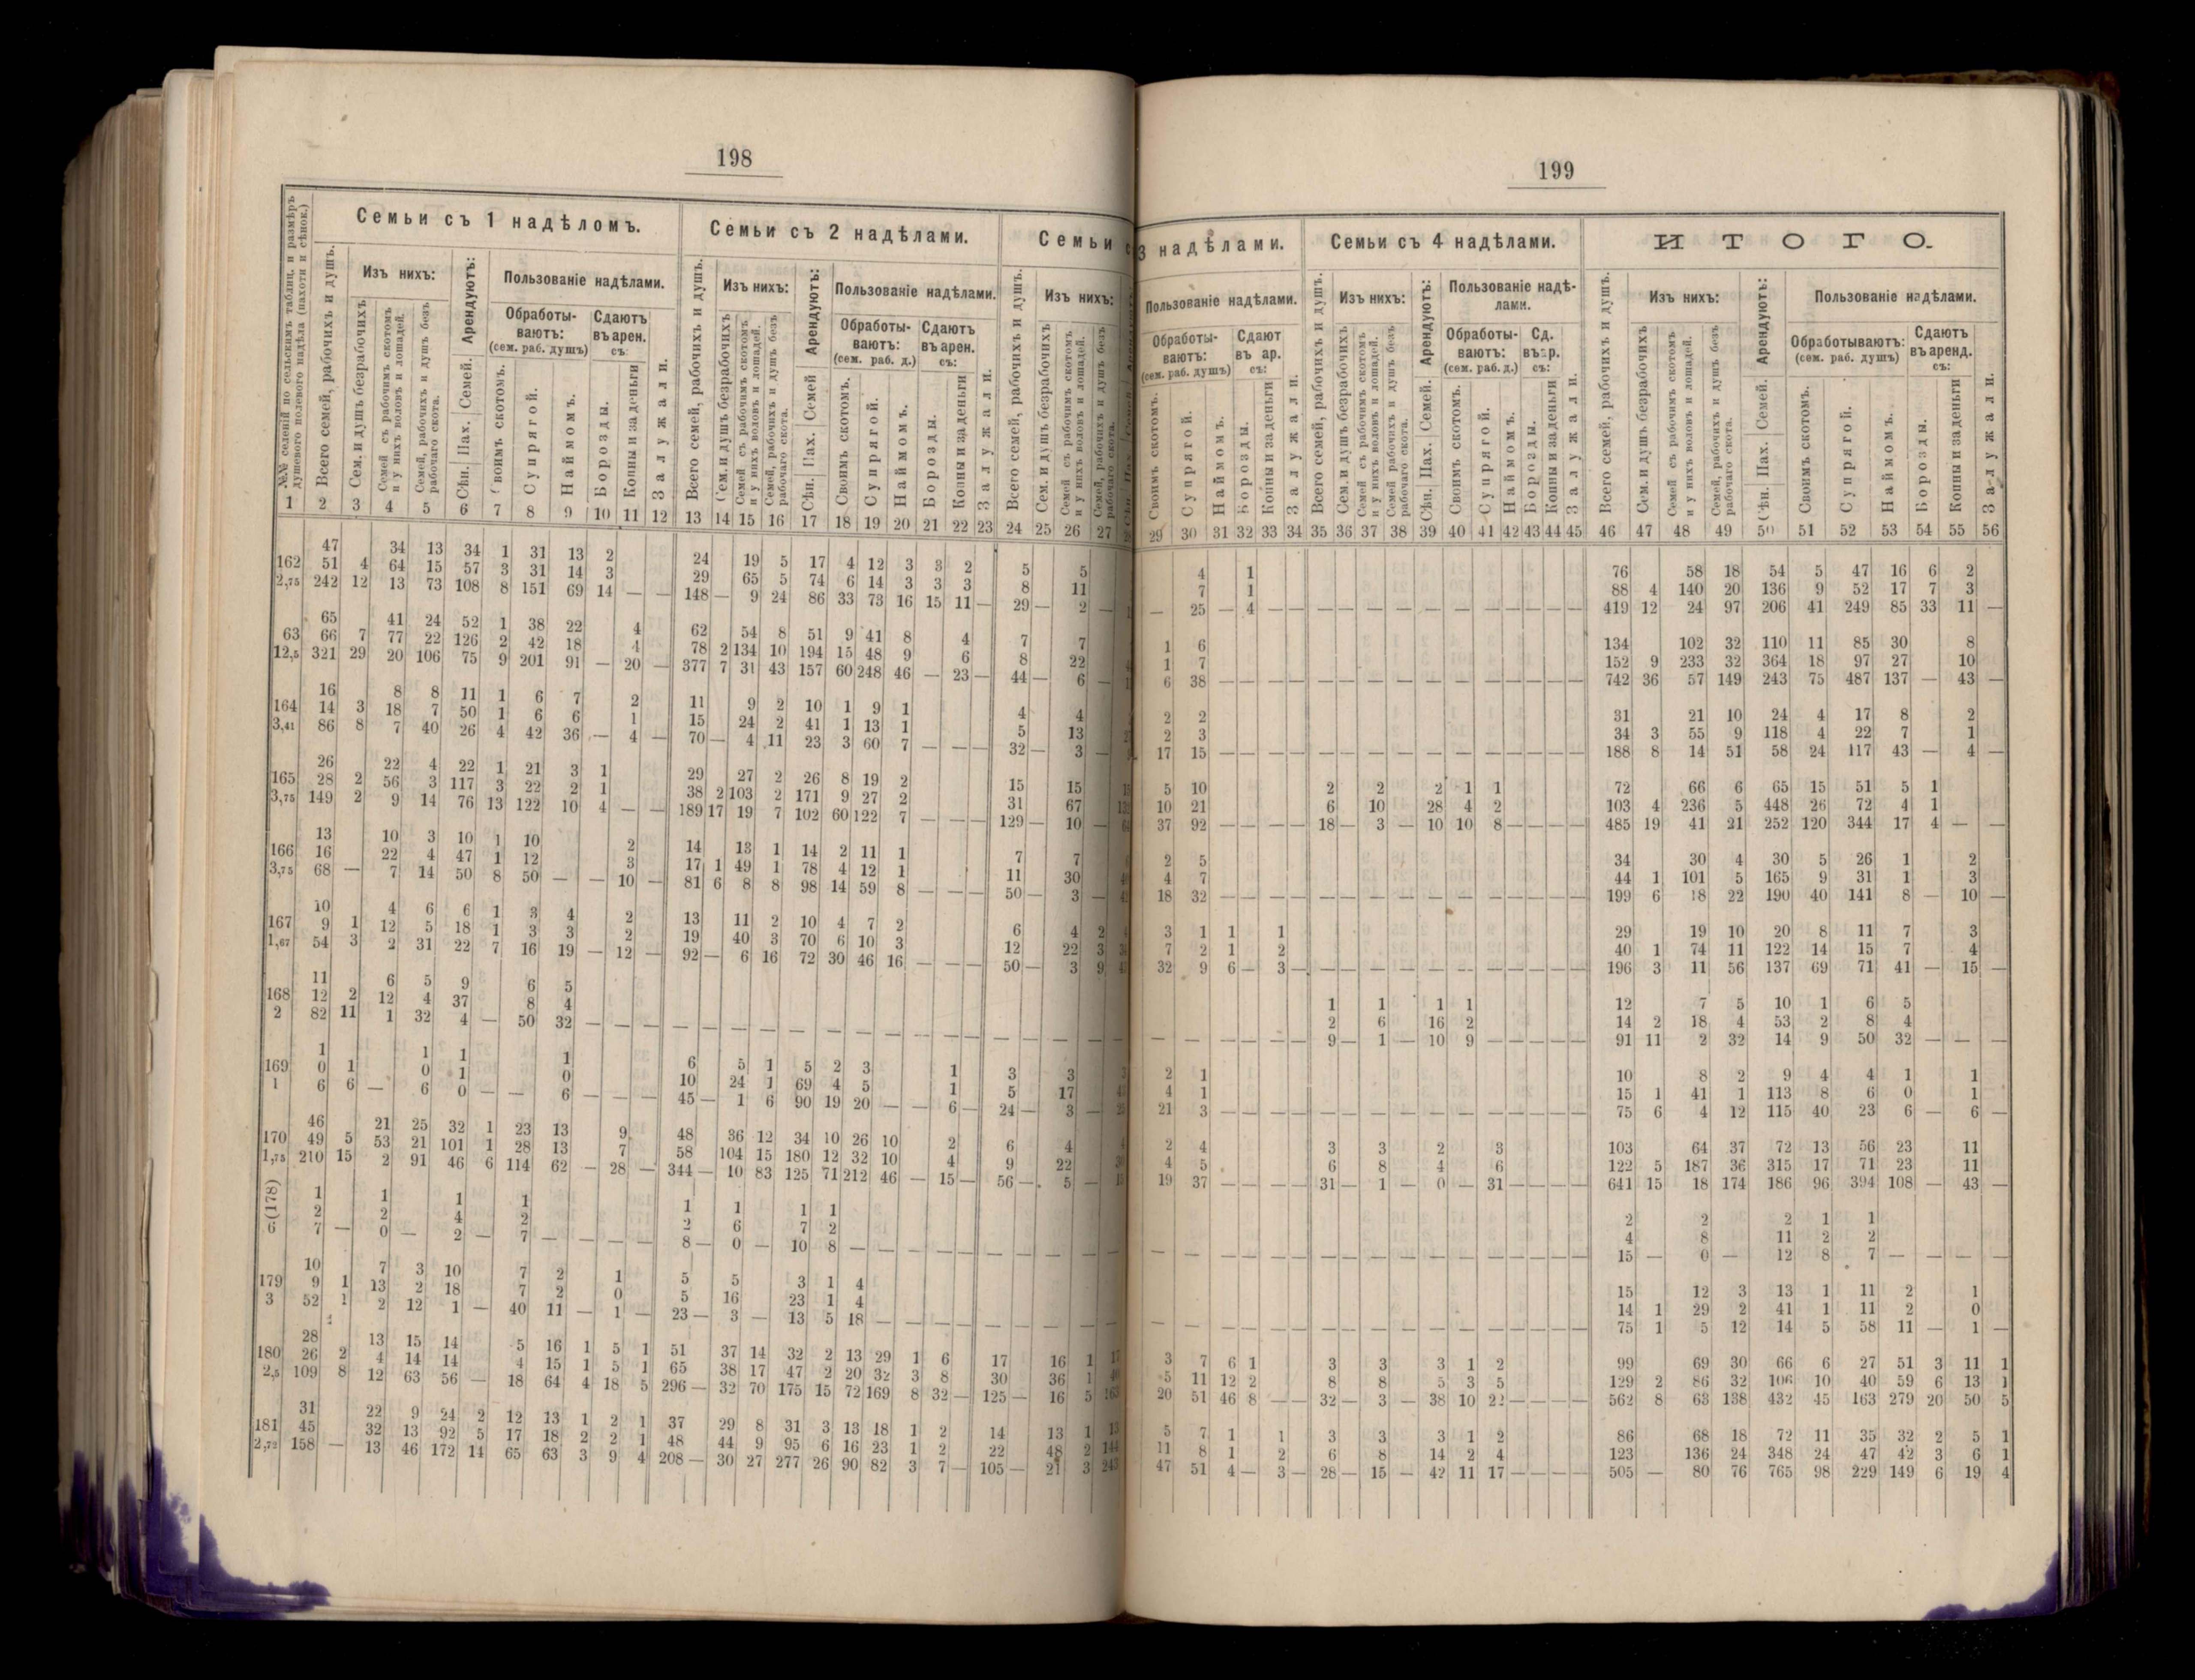 198
Семьи съ 1 надѣломъ. Семьи съ 2 надѣлами. Семьи с
№№ селеній по сельскимъ таблиц. и размѣръ душевого полевого надѣла (пахоти и сѣнок.)
Всего семей, рабочихъ и душъ.
Изъ нихъ:
Сем. и душъ безрабочихъ
Семей съ рабочимъ скотомъ и у нихъ воловъ и лошадей.
Семей, рабочихъ и душъ безъ рабочаго скота.
Арендуютъ:
Сѣн. Пах. Семей.
Пользованіе надѣлами.
Обработываютъ: (сем. раб. душъ)
Своимъ скотомъ.
Супрягой.
Наймомъ.
Сдаютъ въ арен. съ:
Борозды.
Копны и за деньги
Залужали.
Всего семей, рабочихъ и душъ.
Изъ нихъ:
Сем. и душъ безрабочихъ
Семей съ рабочимъ скотомъ и у нихъ воловъ и лошадей.
Семей, рабочихъ и душъ безъ рабочаго скота.
Арендуютъ:
Сѣн. Пах. Семей
Пользованіе надѣлами.
Обработываютъ: (сем. раб. д.)
Своимъ скотомъ.
Супрягой.
Наймомъ.
Сдаютъ въ арен. съ:
Борозды.
Копны и за деньги
Залужали.
Всего семей, рабочихъ и душъ.
Изъ нихъ:
Сем. и душъ безрабочихъ
Семей съ рабочимъ скотомъ и у нихъ воловъ и лошадей.
Семей, рабочихъ и душъ безъ рабочаго скота.
1 2 3 4 5 6 7 8 9 10 11 12 13 14 15 16 17 18 19 20 21 22 23 24 25 26 27
47 34 13 34 1 31 13 2 24 19 5 17 4 12 3 3 2 5 5
162 51 4 64 15 57 3 31 14 3 29 65 5 74 6 14 3 3 3 8 11
2,75 242 12 13 73 108 8 151 69 14 — — 148 — 9 24 86 33 73 16 15 11 — 29 — 2 —
65 41 24 52 1 38 22 4 62 54 8 51 9 41 8 4 7 7
63 66 7 77 22 126 2 42 18 4 78 2 134 10 194 15 48 9 6 8 22
12,5 321 29 20 106 75 9 201 91 — 20 — 377 7 31 43 157 60 248 46 — 23 — 44 — 6 —
16 8 8 11 1 6 7 2 11 9 2 10 1 9 1 4 4
164 14 3 18 7 50 1 6 6 1 15 24 2 41 1 13 1 5 13
3,41 86 8 7 40 26 4 42 36 — 4 — 70 — 4 11 23 3 60 7 — — — 32 — 3 —
26 22 4 22 1 21 3 1 29 27 2 26 8 19 2 15 15
165 28 2 56 3 117 3 22 2 1 38 2 103 2 171 9 27 2 31 67
3,75 149 2 9 14 76 13 122 10 4 — — 189 17 19 7 102 60 122 7 — — — 129 — 10 —
13 10 3 10 1 10 2 14 13 1 14 2 11 1 7 7
166 16 22 4 47 1 12 3 17 1 49 1 78 4 12 1 11 30
3,75 68 — 7 14 50 8 50 — — 10 — 81 6 8 8 98 14 59 8 — — — 50 — 3 —
10 4 6 6 1 3 4 2 13 11 2 10 4 7 2 6 4 2
167 9 1 12 5 18 1 3 3 2 19 40 3 70 6 10 3 12 22 3
1,67 54 3 2 31 22 7 16 19 — 12 — 92 — 6 16 72 30 46 16 — — — 50 — 3 9
11 6 5 9 6 5
168 12 2 12 4 37 8 4
2 82 11 1 32 4 — 50 32 — — — — — — — — — — — — — — — — — —
1 1 1 1 6 5 1 5 2 3 1 3 3
169 0 1 0 1 0 10 24 1 69 4 5 1 5 17
1 6 6 — 6 0 — — 6 — — — 45 — 1 6 90 19 20 — — 6 — 24 — 3 —
46 21 25 32 1 23 13 9 48 36 12 34 10 26 10 2 6 4
170 49 5 53 21 101 1 28 13 7 58 104 15 180 12 32 10 4 9 22
1,75 210 15 2 91 46 6 114 62 — 28 — 344 — 10 83 125 71 212 46 — 15 — 56 — 5 —
1 1 1 1 1 1 1 1
6 (178) 2 2 4 2 2 6 7 2
7 — 0 — 2 — 7 — — — — 8 — 0 — 10 8 — — — — — — — — —
10 7 3 10 7 2 1 5 5 3 1 4
179 9 1 13 2 18 7 2 0 5 16 23 1 4
3 52 1 2 12 1 — 40 11 — 1 — 23 — 3 — 13 5 18 — — — — — — — —
28 13 15 14 5 16 1 5 1 51 37 14 32 2 13 29 1 6 17 16 1
180 26 2 4 14 14 4 15 1 5 1 65 38 17 47 2 20 32 3 8 30 36 1
2,5 109 8 12 63 56 — 18 64 4 18 5 296 — 32 70 175 15 72 169 8 32 — 125 — 16 5
31 22 9 24 2 12 13 1 2 1 37 29 8 31 3 13 18 1 2 14 13 1
181 45 32 13 92 5 17 18 2 2 1 48 44 9 95 6 16 23 1 2 22 48 2
2,72 158 — 13 46 172 14 65 63 3 9 4 208 — 30 27 277 26 90 82 3 7 — 105 — 21 3
199
3 надѣлами. Семьи съ 4 надѣлами. ИТОГО.
Пользованіе надѣлами.
Обработываютъ: (сем. раб. душъ)
Своимъ скотомъ.
Супрягой.
Наймомъ.
Сдают въ ар. съ:
Борозды.
Копны и за деньги
Залужали.
Всего семей, рабочихъ и душъ.
Изъ нихъ:
Сем. и душъ безрабочихъ
Семей съ рабочимъ скотомъ и у нихъ воловъ и лошадей.
Семей, рабочихъ и душъ безъ рабочаго скота.
Арендуютъ:
Сѣн. Пах. Семей.
Пользованіе надѣлами.
Обработываютъ: (сем. раб. д.)
Своимъ скотомъ.
Супрягой.
Наймомъ.
Сд. въ ар. съ:
Борозды.
Копны и за деньги
Залужали.
Всего семей, рабочихъ и душъ.
Изъ нихъ:
Сем. и душъ безрабочихъ
Семей съ рабочимъ скотомъ и у нихъ воловъ и лошадей.
Семей, рабочихъ и душъ безъ рабочаго скота.
Арендуютъ:
Сѣн. Пах. Семей.
Пользованіе надѣлами.
Обработываютъ: (сем. раб. душъ)
Своимъ скотомъ.
Супрягой.
Наймомъ.
Сдаютъ въ аренд. съ:
Борозды.
Копны и за деньги
Залужали.
29 30 31 32 33 34 35 36 37 38 39 40 41 42 43 44 45 46 47 48 49 50 51 52 53 54 55 56
4 1 76 58 18 54 5 47 16 6 2
7 1 88 4 140 20 136 9 52 17 7 3
— 25 — 4 — — — — — — — — — — — — — 419 12 24 97 206 41 249 85 33 11 —
1 6 134 102 32 110 11 85 30 8
1 7 152 9 233 32 364 18 97 27 10
6 38 — — — — — — — — — — — — — — — 742 36 57 149 243 75 487 137 — 43 —
2 2 31 21 10 24 4 17 8 2
2 3 34 3 55 9 118 4 22 7 1
17 15 — — — — — — — — — — — — — — — 188 8 14 51 58 24 117 43 — 4 —
5 10 2 2 2 1 1 72 66 6 65 15 51 5 1
10 21 6 10 28 4 2 103 4 236 5 448 26 72 4 1
37 92 — — — — 18 — 3 — 10 10 8 — — — — 485 19 41 21 252 120 344 17 4 — —
2 5 34 30 4 30 5 26 1 2
4 7 44 1 101 5 165 9 31 1 3
18 32 — — — — — — — — — — — — — — — 199 6 18 22 190 40 141 8 — 10 —
3 1 1 1 29 19 10 20 8 11 7 3
7 2 1 2 40 1 74 11 122 14 15 7 4
32 9 6 — 3 — — — — — — — — — — — — 196 3 11 56 137 69 71 41 — 15 —
1 1 1 1 12 7 5 10 1 6 5
2 6 16 2 14 2 18 4 53 2 8 4
— — — — — — 9 — 1 — 10 9 — — — — — 91 11 2 32 14 9 50 32 — — —
2 1 10 8 2 9 4 4 1 1
4 1 15 1 41 1 113 8 6 0 1
21 3 — — — — — — — — — — — — — — — 75 6 4 12 115 40 23 6 — 6 —
2 4 3 3 2 3 103 64 37 72 13 56 23 11
4 5 6 8 4 6 122 5 187 36 315 17 71 23 11
19 37 — — — — 31 — 1 — 0 — 31 — — — — 641 15 18 174 186 96 394 108 — 43 —
2 2 2 1 1
4 8 11 2 2
— — — — — — — — — — — — — — — — — 15 — 0 — 12 8 7 — — — —
15 12 3 13 1 11 2 1
14 1 29 2 41 1 11 2 0
— — — — — — — — — — — — — — — — — 75 1 5 12 14 5 58 11 — 1 —
3 7 6 1 3 3 3 1 2 99 69 30 66 6 27 51 3 11 1
5 11 12 2 8 8 5 3 5 129 2 86 32 106 10 40 59 6 13 1
20 51 46 8 — — 32 — 3 — 38 10 22 — — — — 562 8 63 138 432 45 163 279 20 50 5
5 7 1 1 3 3 3 1 2 86 68 18 72 11 35 32 2 5 1
11 8 1 2 6 8 14 2 4 123 136 24 348 24 47 42 3 6 1
47 51 4 — 3 — 28 — 15 — 42 11 17 — — — — 505 — 80 76 765 98 229 149 6 19 4